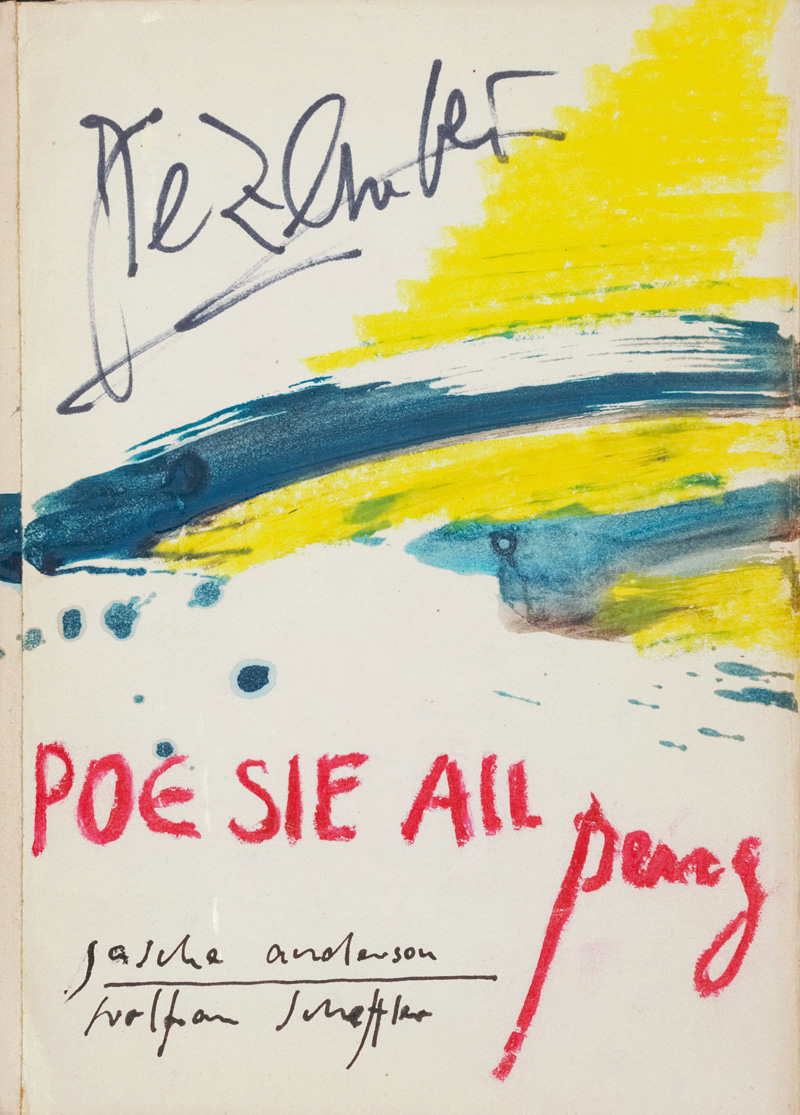 DeZember
POESIE ALL
peng
sascha anderson
wolfram scheffler